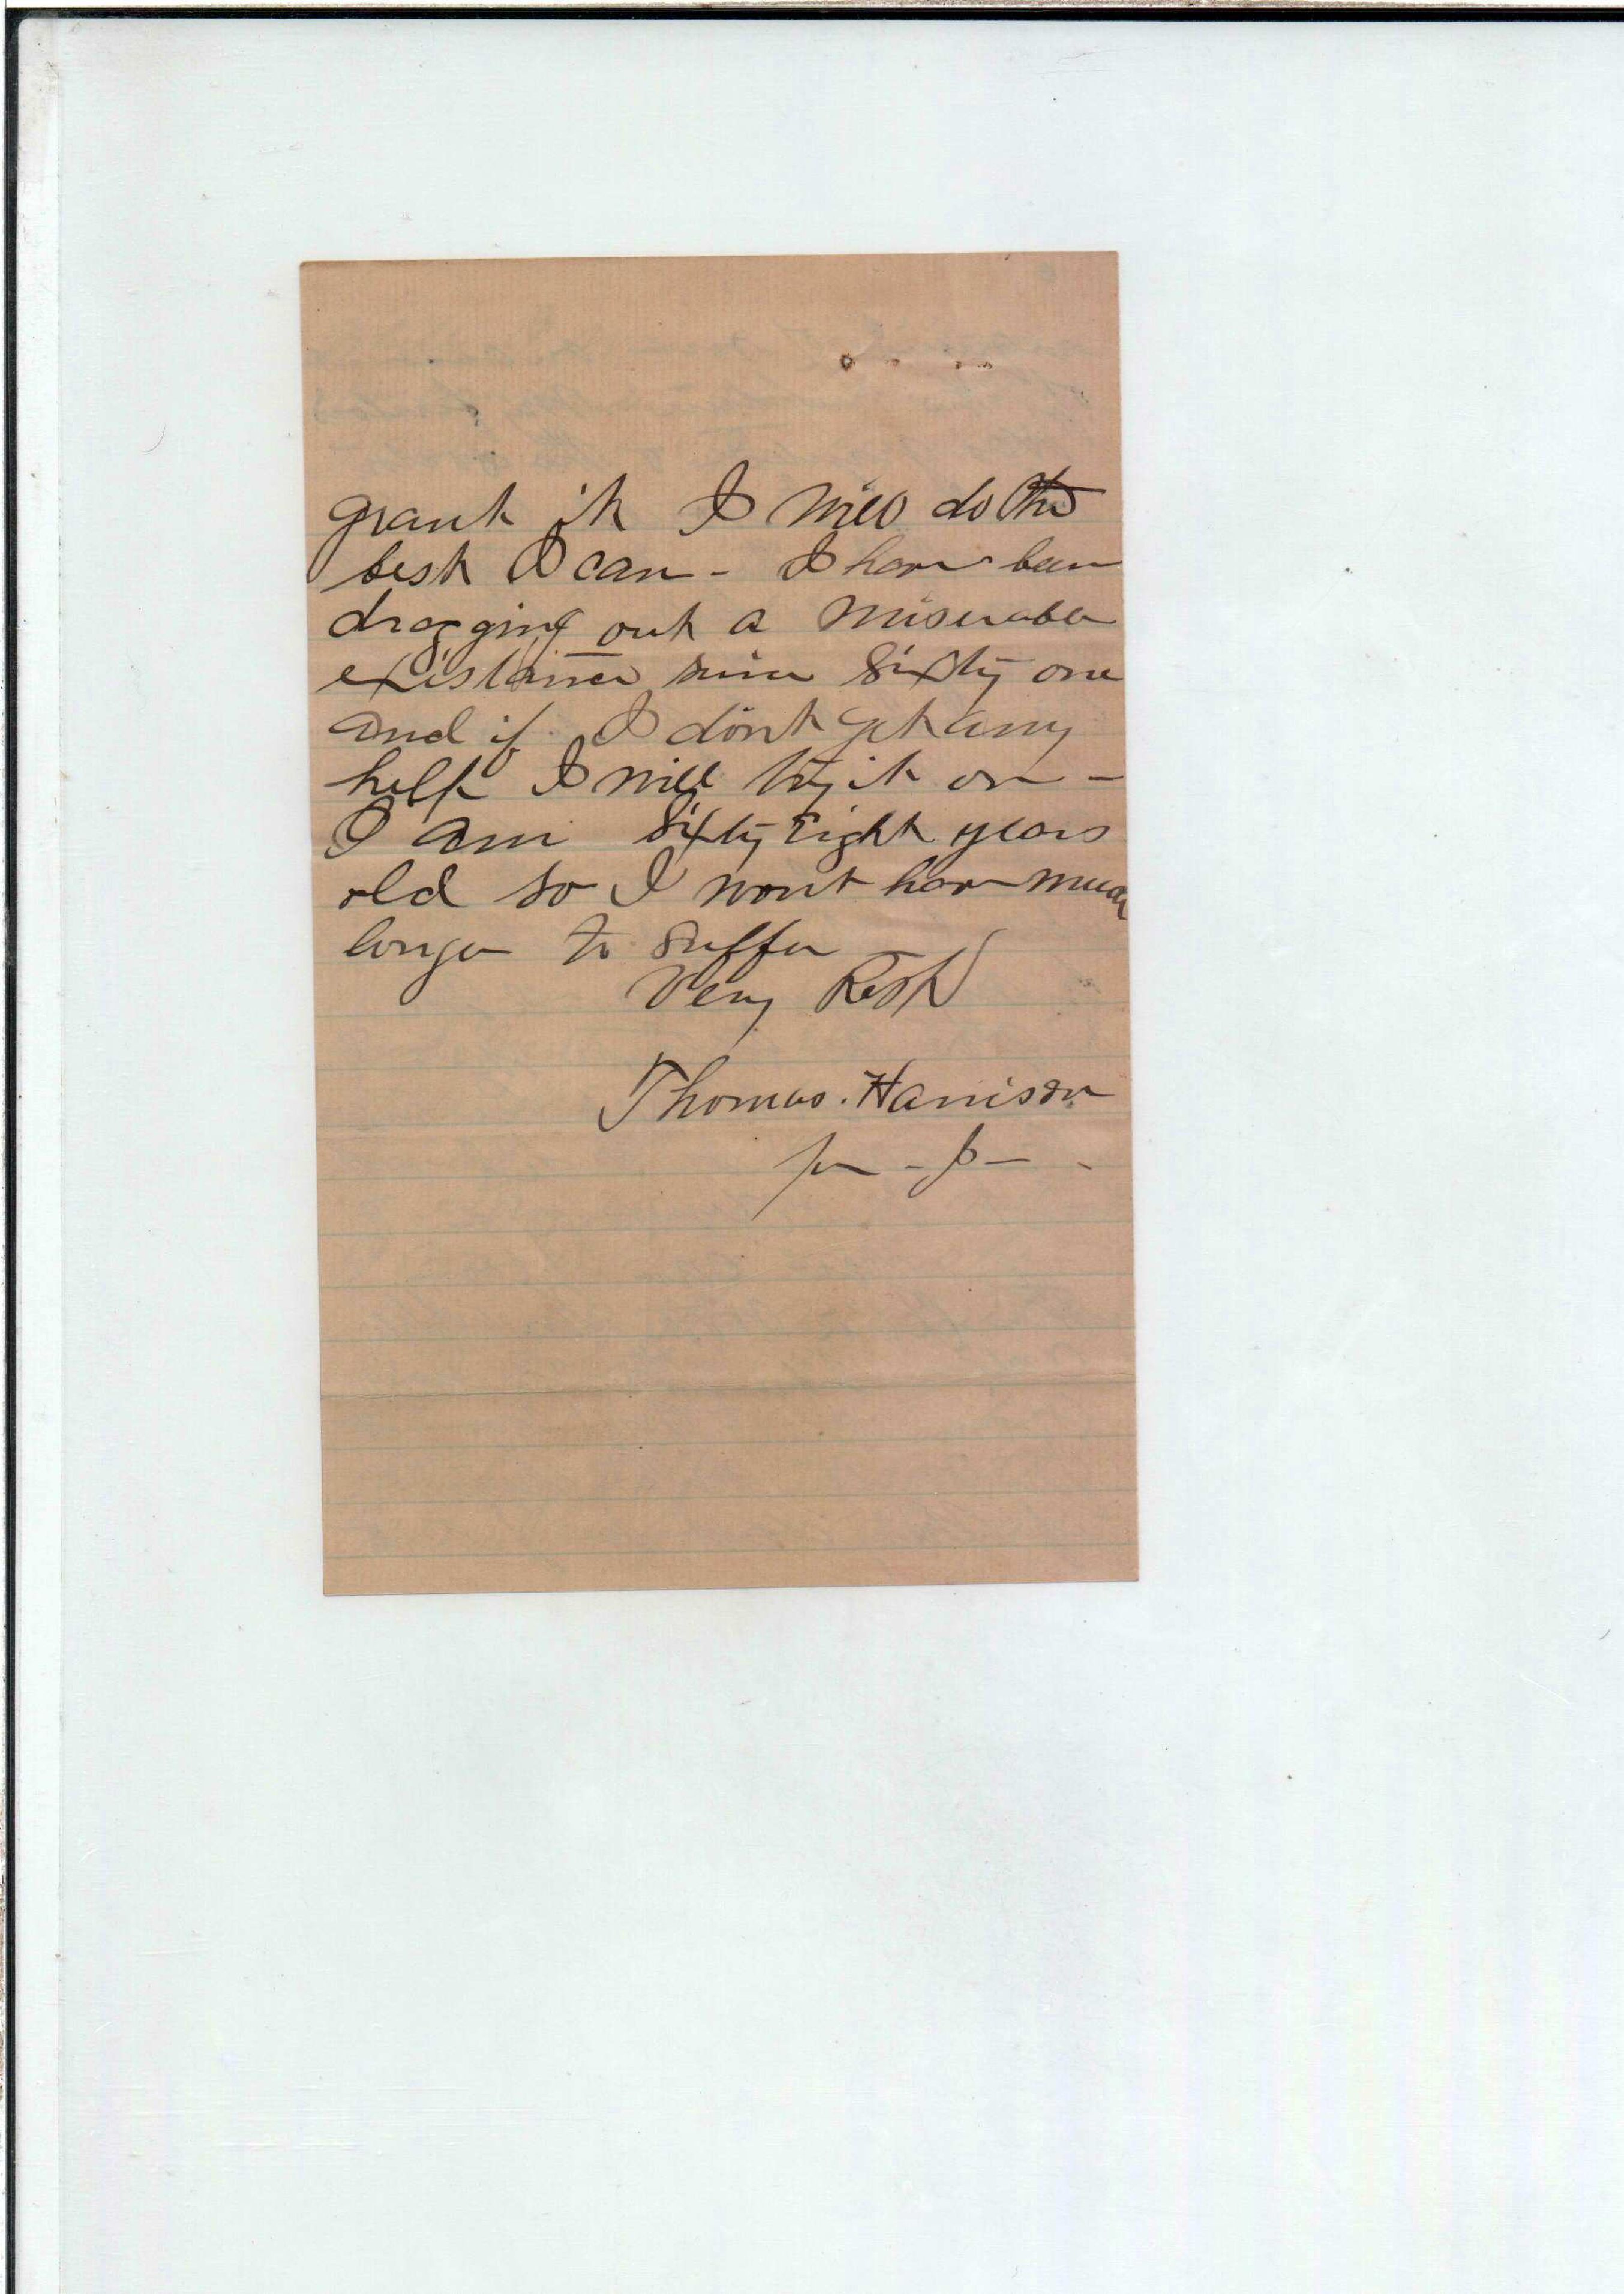 grant it I will do the
best I can - I have been
dragging out a miserable
existance since Sixty one
and if I don't get any
help I will try it on -
I am Sixty Eight years
old so I wont have much
longer to suffer
Very Resp
Thomas. Harrison
per - J -